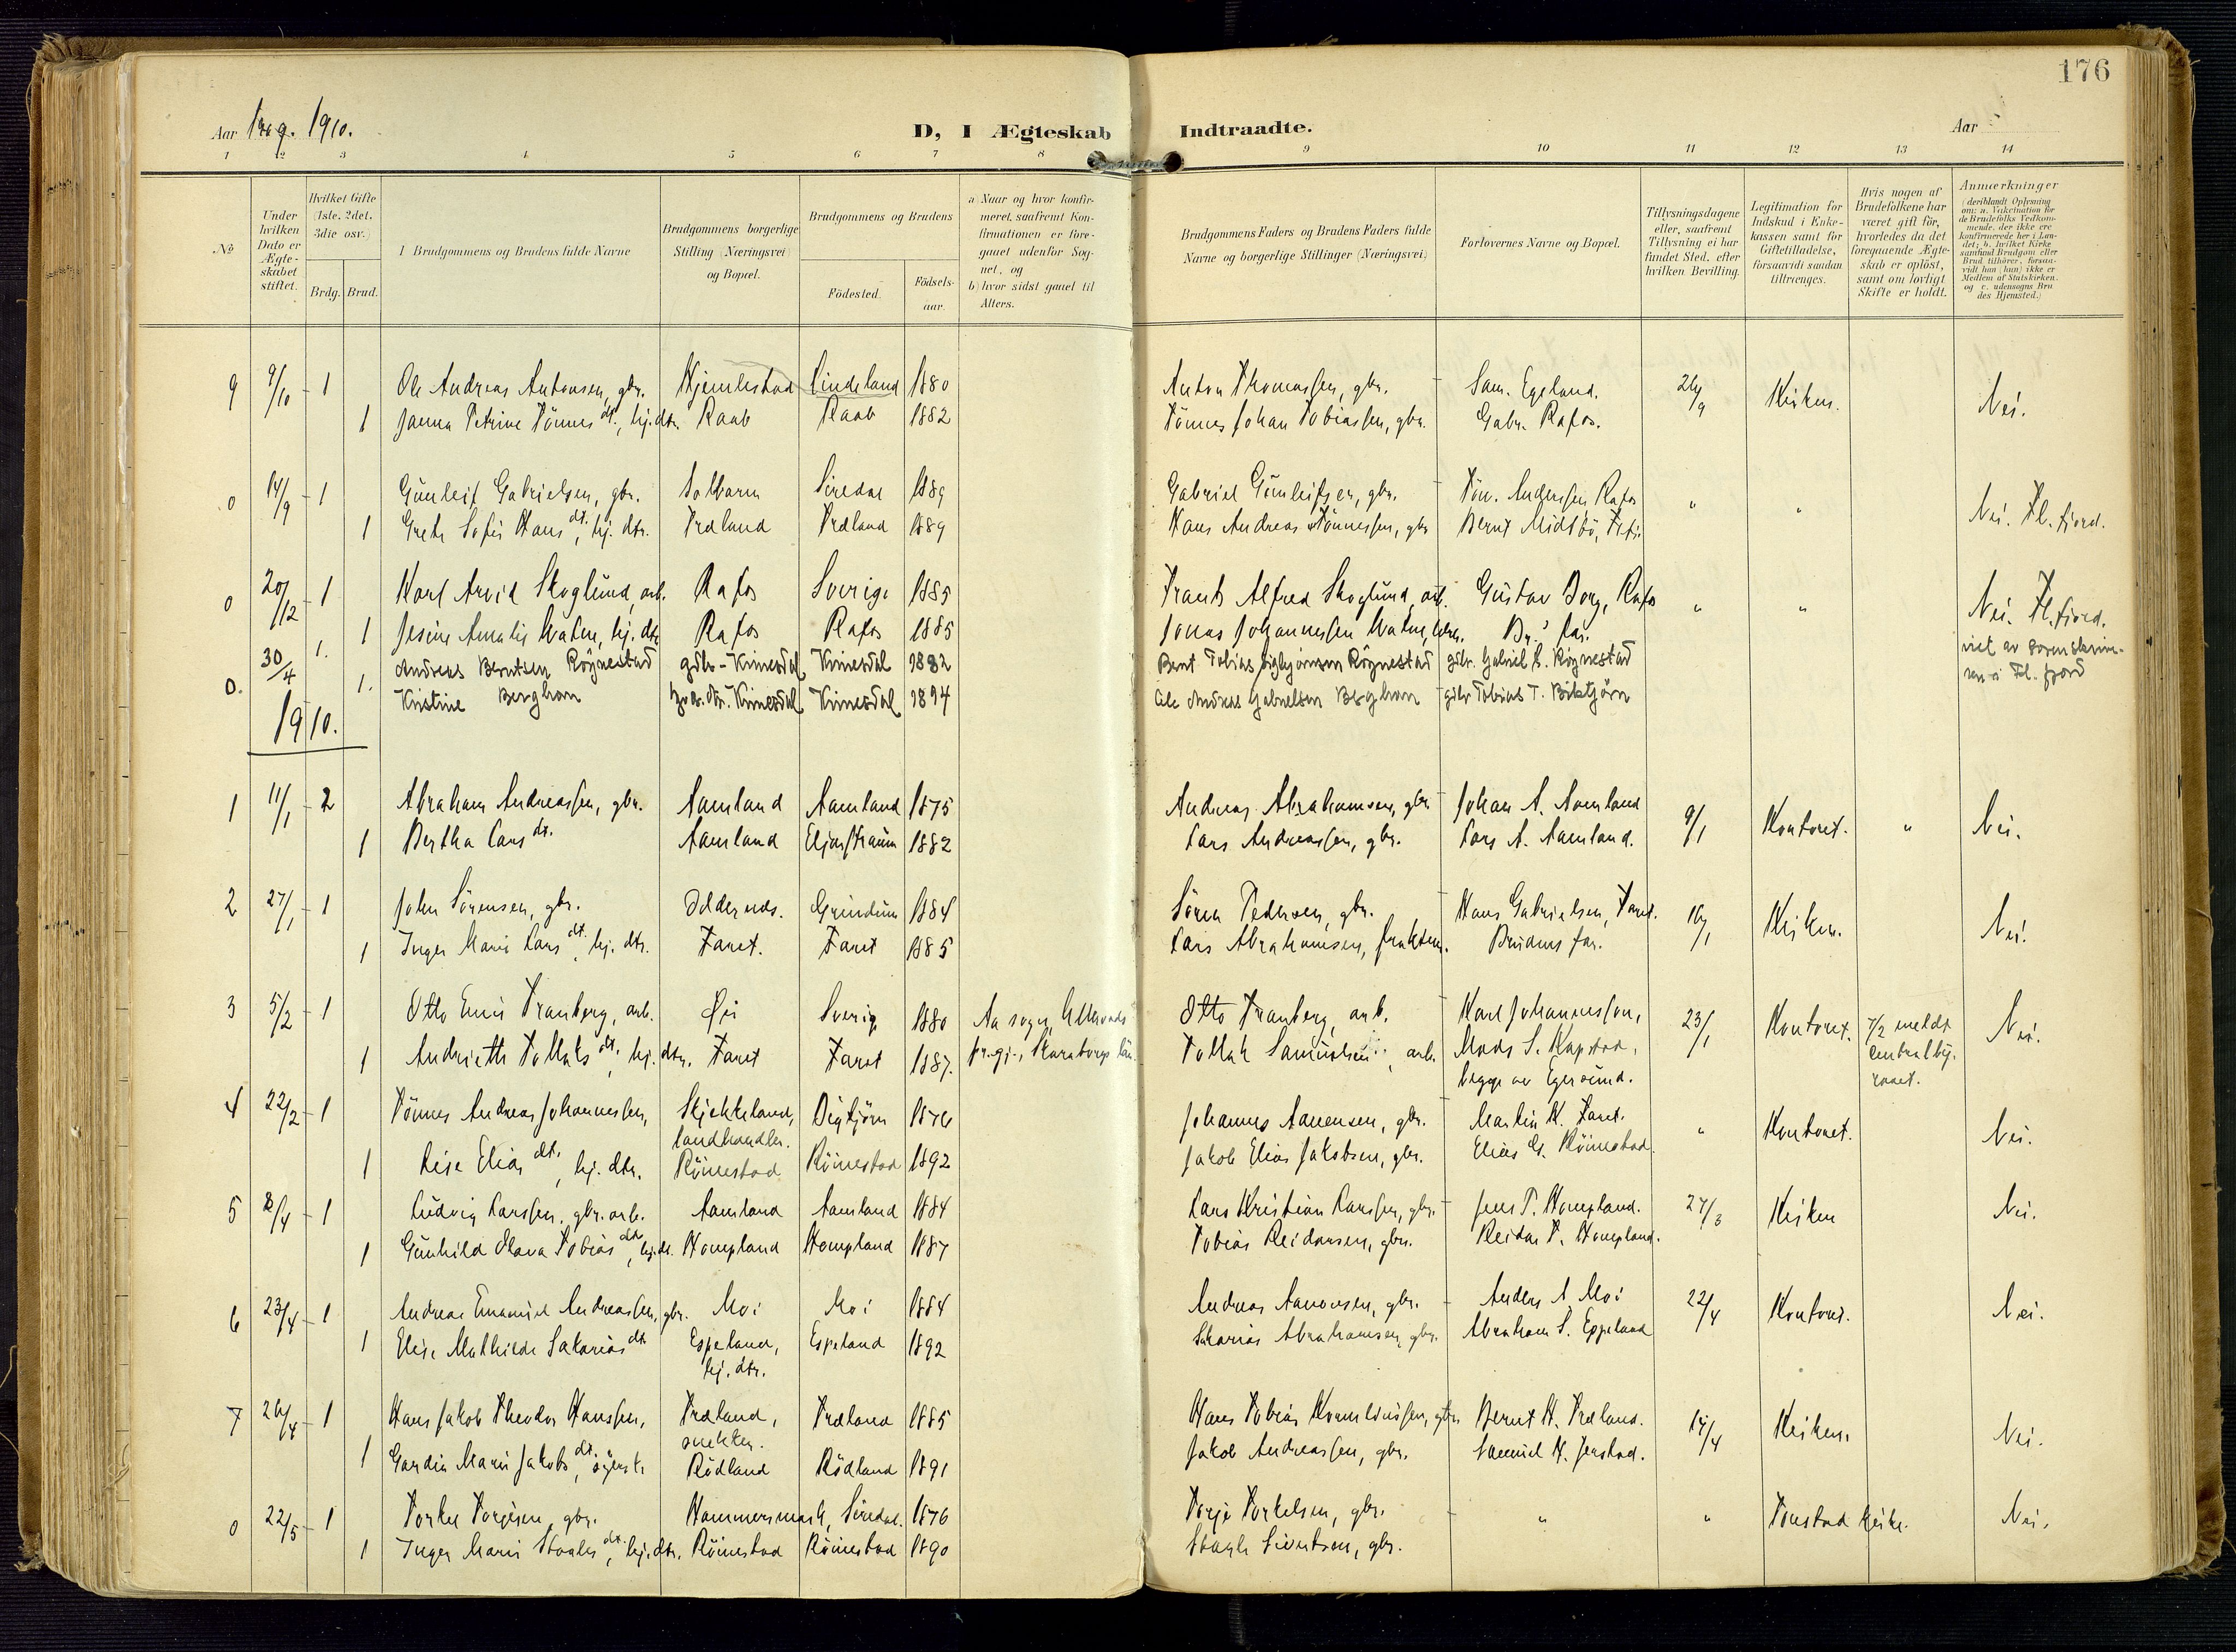 176
Aar 1909. 1910.
D, I Ægteskab Indtraadte.
Aar
1 2 3 4 5 6 7 8 9 10 11 12 13 14
No
Under hvilken Dato er Ægteskabet stiftet.
Hvilket Gifte (1ste, 2det, 3die osv.)
Brdg. Brud.
Brudgommens og Brudens fulde Navne
Brudgommens borgerlige Stilling (Næringsvei) og Bopæl.
Brudgommens og Brudens
Födested.
Födsels-aar.
a) Naar og hvor konfirmeret, saafremt Konfirmationen er foregaaet udenfor Sognet, og
b) hvor sidst gaaet til Alters.
Brudgommens Faders og Brudens Faders fulde Navne og borgerlige Stillinger (Næringsvei)
Forlovernes Navne og Bopæl.
Tillysningsdagene eller, saafremt Tillysning ei har fundet Sted, efter hvilken Bevilling.
Legitimation for Indskud i Enkekassen samt for Giftetilladelse, forsaavidt saadan tiltrænges.
Hvis nogen af Brudefolkene har været gift för, hvorledes da det foregaaende Ægteskab er oplöst, samt om lovligt Skifte er holdt.
Anmærkninger
9 9/10 1 Ole Andreas Antonsen, gbr. Hjemlestad Lindeland 1880 Anton Thomassen, gbr. Sam. Egeland. 26/9 Kirken. Nei.
1 Janna Petrine Tönnesdt., hj. dtr. Raab Raab 1882 Tönnes Johan Tobiassen, gbr. Gabr. Rafos.
0 14/9 1 Gunleif Gabrielsen, gbr. Solbarm Siredal 1889 Gabriel Gunleifsen, gbr. Tön. Anderssen, Rafos " " Nei. Fl.fjord.
1 Grete Sofie Hansdt., hj. dtr. Træland Træland 1889 Hans Andreas Tönnessen, gbr Bernt Midtbö,
0 20/12 1 Karl Arvid Skoglund, arb. Rafos Sverige 1885 Frants Alfred Skoglund, arb. Gustav Borg, Rafos " " Nei. Fl.fjord.
1 Jesine Amalie Hatun, hj. dtr Rafos Rafos 1885 Jonas Johannessen Br.s far. viet av sorenskrive-
0. 30/4 1. Andreas Berntsen Röynestad gdbr- Kvinesdal Kvinesdal 1882 Bernt Tobias Sigbjörnsen Röynestad gdbr. Gabriel S. Röynestad ren i Fl. fjord
1. Kristine Berghom Kvinesdal Kvinesdal 1894 Ole Andreas Gabrielsen Berghom gdbr Tobias T. Birktjörn
1910.
1 11/1 2 Abraham Andreassen, gbr. Aamland Aamland 1875 Andreas Abrahamsen, gbr. Johan A. Aamland 9/1 Kontoret. " Nei.
1 Bertha Larsdt. Aamland Eljarstraum 1882 Lars Andreassen, gbr. Lars A. Aamland.
2 27/1 1 John Sörensen, gbr. Grindum 1884 Sören Pedersen, gbr. Hans Gabrielsen, Faret. 16/1 Kirken. Nei.
1 Inger Marie Larsdt., hj. dtr. Faret. Faret 1885 Lars Abrahamsen, Brudens far.
3 5/2 1 Otto Emil Tranberg, arb. Öie Sverige 1880 Aa sogn, Otto Tranberg, arb. Karl Johannesson, 23/1 Kontoret. 7/2 meldt Nei.
1 Andriette Tollaksdt., hj. dtr. Faret Faret 1887. pr.gj., Skaraborgs län Tollak Samuelsen, arb. Mads S. Kapstad, Centralby-
begge av Egersund. raaet.
4 22/2 1 Tönnes Andreas Johannessen, Skjekkeland, Digtjörn 1876 Johannes Aanensen, gbr. Martin H. Faret. " Kontoret. Nei.
landhandler.
1 Lise Eliasdt., hj. dtr. Röinestad Röinestad 1892 Jakob Elias Jakobsen, gbr. Elias G. Röinestad.
5 8/4 1 Ludvig Larssen, gbr. arb. Aamland Aamland 1884 Lars Kristian Larssen, gbr. Jens T. Hompland. 27/3 Kirken Nei.
1 Gunhild Olava Tobiasdt., hj. dt. Hompland Hompland 1887 Tobias Reidarsen, gbr. Reidar T. Hompland.
6 23/4 1 Andreas Emanuel Andreassen, gbr. Moi Moi 1884 Andreas Aanonsen, gbr. Anders A Moi 22/4 Kontoret. Nei.
1 Elise Mathilde Sakariasdt Espeland, Espeland 1892 Sakarias Abrahamsen, gbr. Abraham S. Espeland
hj. dtr.
7 26/4 1 Hans Jakob Theodor Hanssen, Træland, Træland 1885 Hans Tobias Kornelinssen, gbr Bernt H. Træland. 17/4 Kirken. Nei.
snekker.
1 Gardia Marie Jakobsdt. Rödland Rödland 1891 Jakob Andreassen, gbr. Samuel H. Jerstad.
0 22/5 1 Torkel Torjesen, gbr. Hammersmark, Siredal. 1876 Torje Torkelsen, gbr. " " Tonstad kirke. Nei.
1 Inger Marie Staalesdt., hj. dtr. Röinestad Röinestad 1890 Staale Sivertsen, gbr.